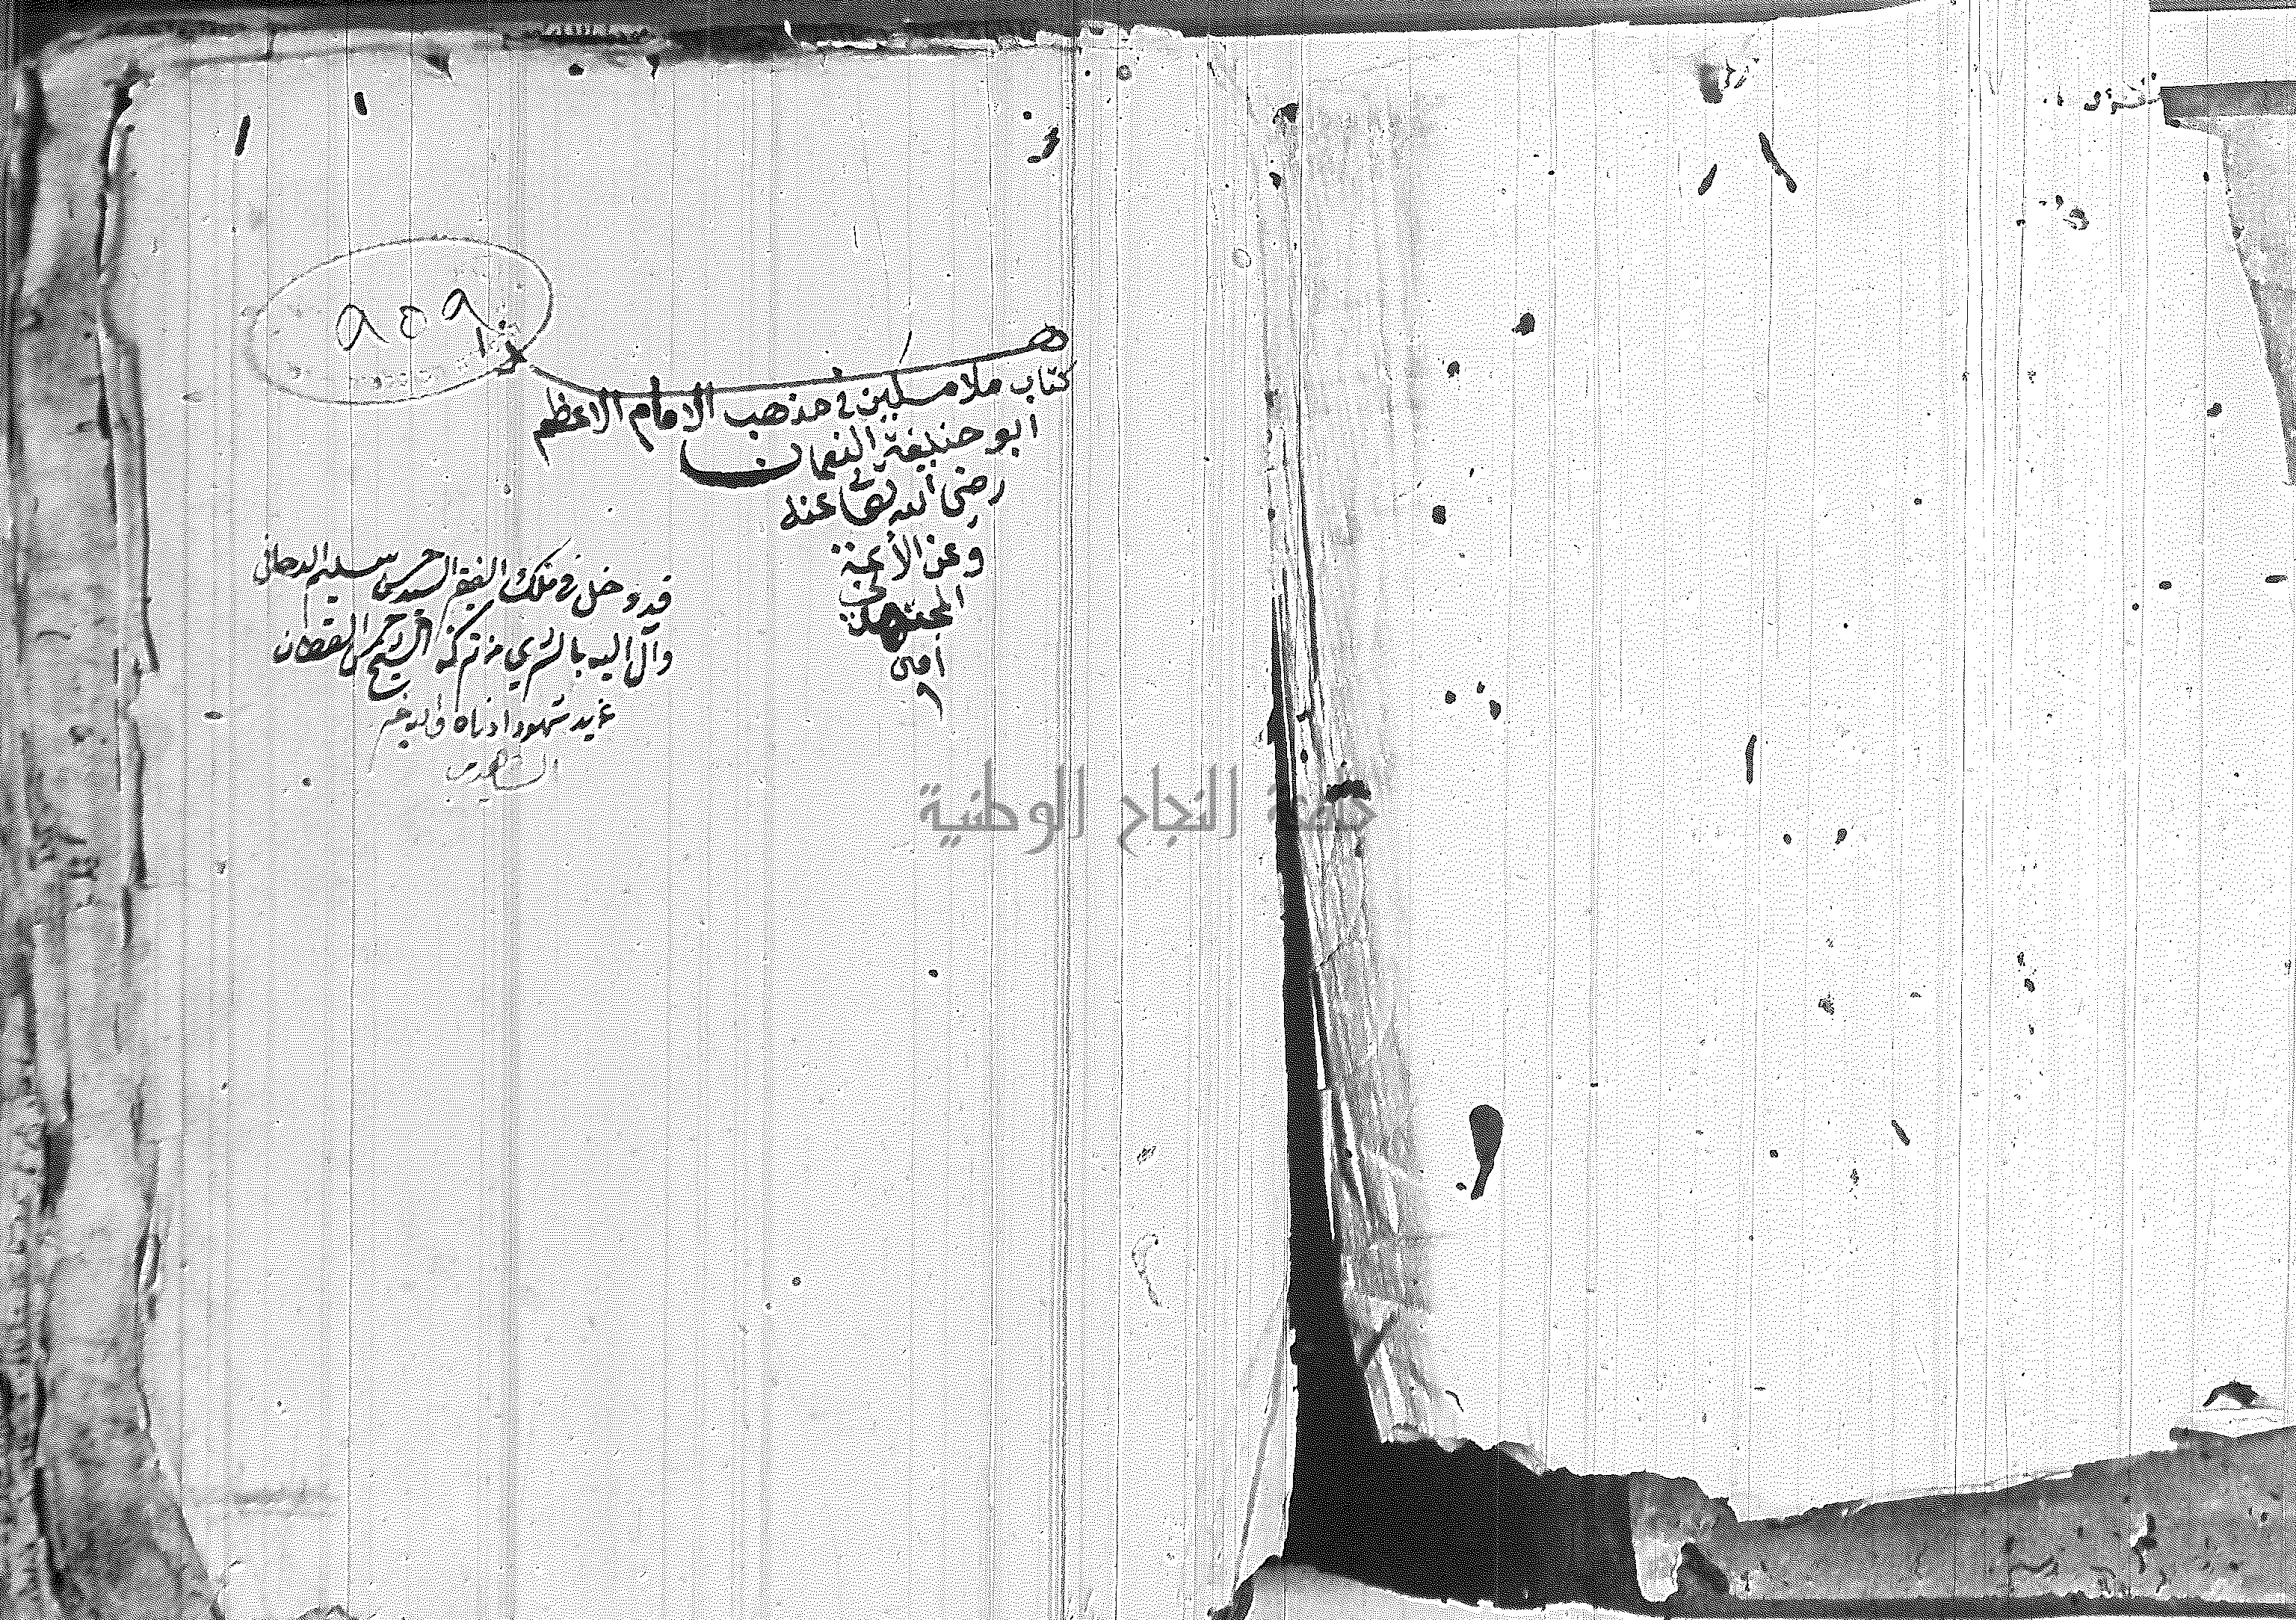 ٩٥٩
هذا
كتاب ملا مسكين في مذهب الامام الاعظم
ابو حنيفة النعمان
رضى الله تعالى عنه
وعن الأئمة
المجتهدين
امين
قد دخل في ملك الفقير السيد حسن سليم الدجاني
وآل اليه بالشري من تركة الشيخ القطان
شهود ادناه
الشاهدين
جامعة النجاح الوطنية